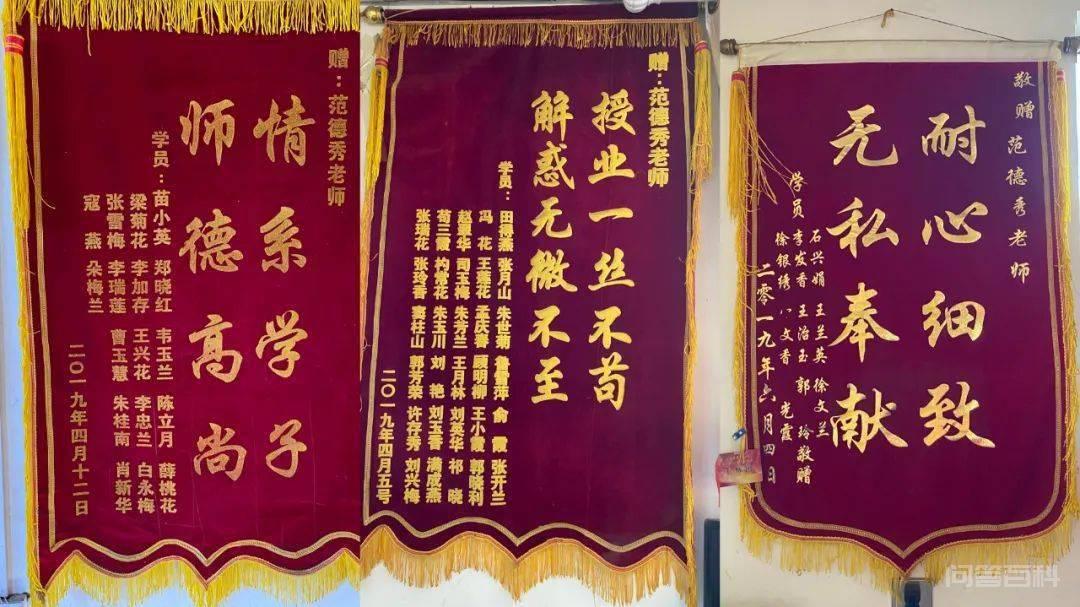 赠：范德秀老师
情系学子
师德高尚
学员：苗小英 郑晓红 韦玉兰 陈立月 薛桃花
梁菊花 李加存 王兴花 李忠兰 白永梅
张雪梅 李瑞莲 曹玉慧 朱桂南 肖新华
寇燕 朵梅兰
二〇一九年四月十二日
赠：范德秀老师
授业一丝不苟
解惑无微不至
学员：田得燕 张月山 朱世菊 詹雪萍 俞霞 张开兰
冯花 王莲花 孟庆春 顾明柳 王小霞 郭晓利
赵翠华 司玉梅 朱芳兰 王月林 刘英华 祁晓
苟三霞 杓常花 朱玉川 刘艳 刘玉香 满成燕
张瑞花 张玲香 窦桂山 郭芳荣 许存秀 刘兴梅
二〇一九年四月五号
敬赠范德秀老师
耐心细致
无私奉献
学员 石兴娟 王兰英 徐文兰
李发香 王治玉 郭玲敬赠
徐银绣 文香 光霞
二零一九年六月四日
问答百科